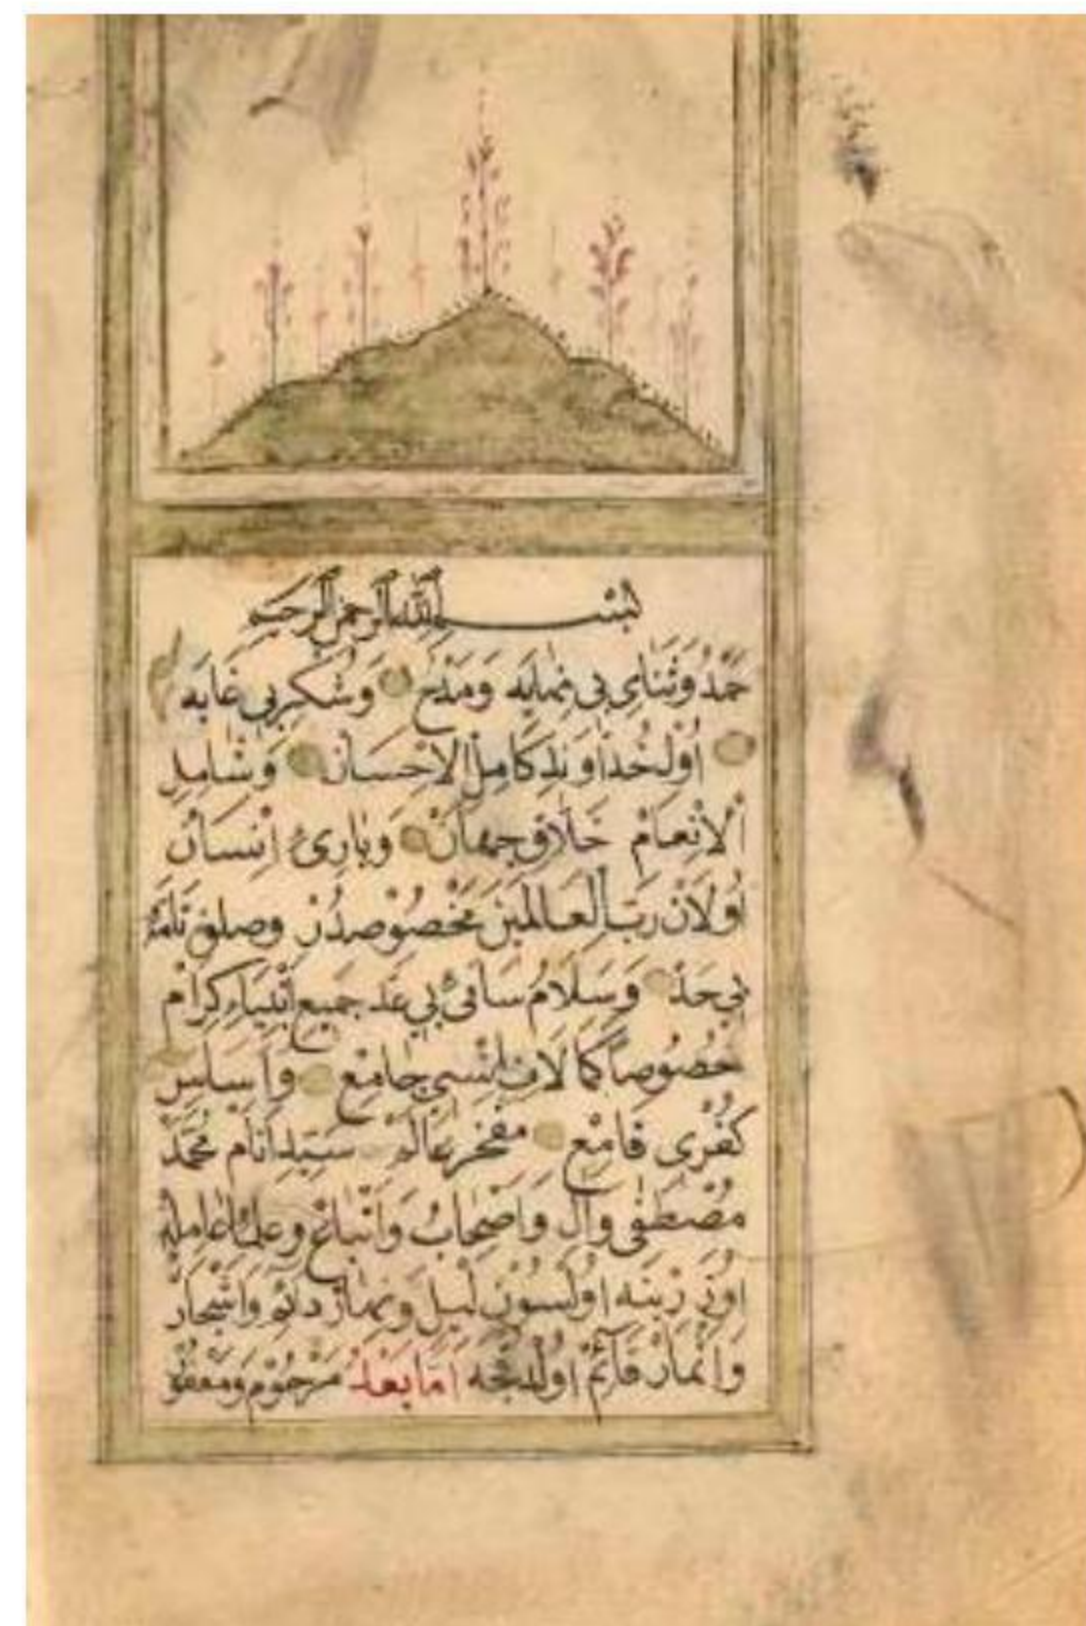 بسم الله الرحمن الرحيم
حَمْدُ وَثَنَايِ بِي نِهَايَه وَمَدْحِ وَشُكْرِ بِي غَايَه
اُوْلْ خُدَاوَنْدِ كَامِلْ الاِحْسَانْ وَشَامِلِ
اْلاِنْعَامْ خَلَّاقِ جِهَانْ وَبَارِئُ اِنْسَانْ
اُولَانْ رَبِّ الْعَالَمِينَ مَخْصُوصْدُرْ وصلوة
بِي حَدْ وَسَلَامُ بِي عَدْ جَمِيعِ اَنْبِيَاءِ كِرَامْ
خُصُوصاً كَمَالَاتِ جَامِعْ وَاَسَاسِ
كُفْرِى قَامِعْ مَفْخَرِ عَالَمْ سَيِّدِ اَنَامْ مُحَمَّدْ
مُصْطَفَى وَآلْ وَاَصْحَابُ وَاَتْبَاعْ وَ
اُوزَرِينَه اُولْسُونْ لَيْلِ وَنَهَارْ دَائِمْ وَاَشْجَارْ
وَاَثْمَارْ قَائِمْ اُولْدُقْجَه اَمَّا بَعْدُ مَرْحُومْ وَمَغْفُورْ